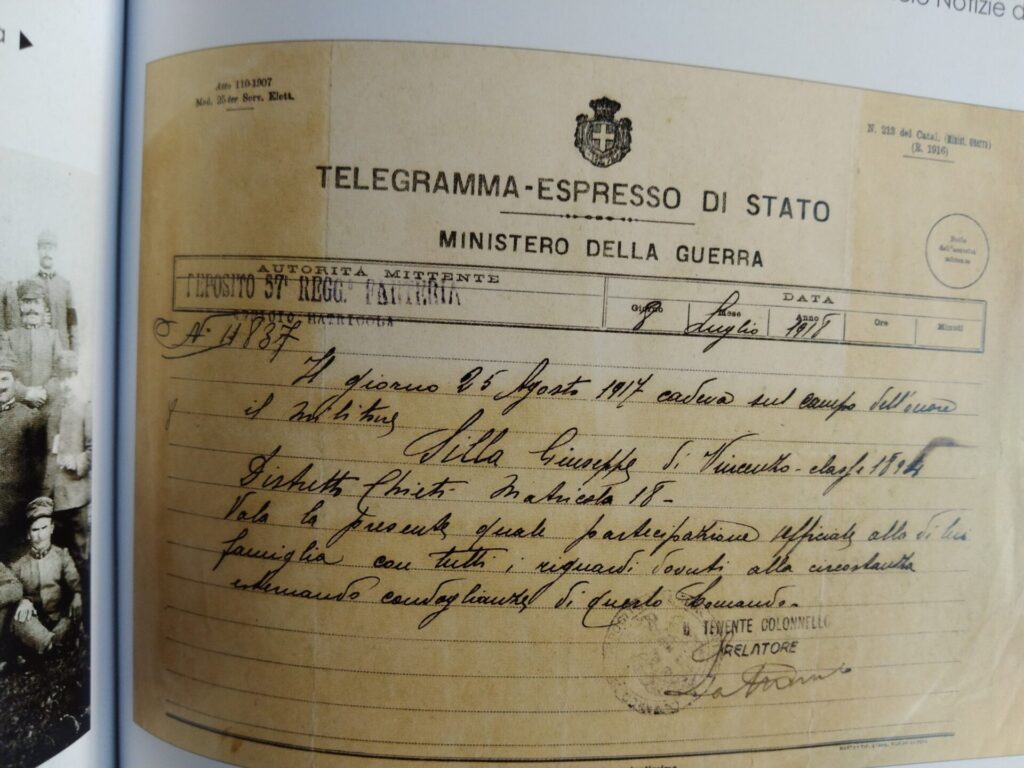 Notizie d
a
Atto 110-1907
Mod. 25 ter Serv. Elett.
N. 213 del Catal. (Minist. Guerra)
(R. 1916)
TELEGRAMMA-ESPRESSO DI STATO
MINISTERO DELLA GUERRA
Bollo
dell'autorità
mittente
AUTORITÀ MITTENTE
DATA
DEPOSITO 57° REGG.° FANTERIA
Giorno Mese Anno Ore Minuti
8 Luglio 1918
UFFICIO MATRICOLA
N. 4837
Il giorno 25 Agosto 1917 cadeva sul campo dell'onore
il militare
Silla Giuseppe di Vincenzo - classe 1894
Distretto Chieti - Matricola 18 -
Vala la presente quale partecipazione ufficiale alla di lui
famiglia con tutti i riguardi dovuti alla circostanza
esternando condoglianze di questo Comando -
Il TENENTE COLONNELLO
RELATORE